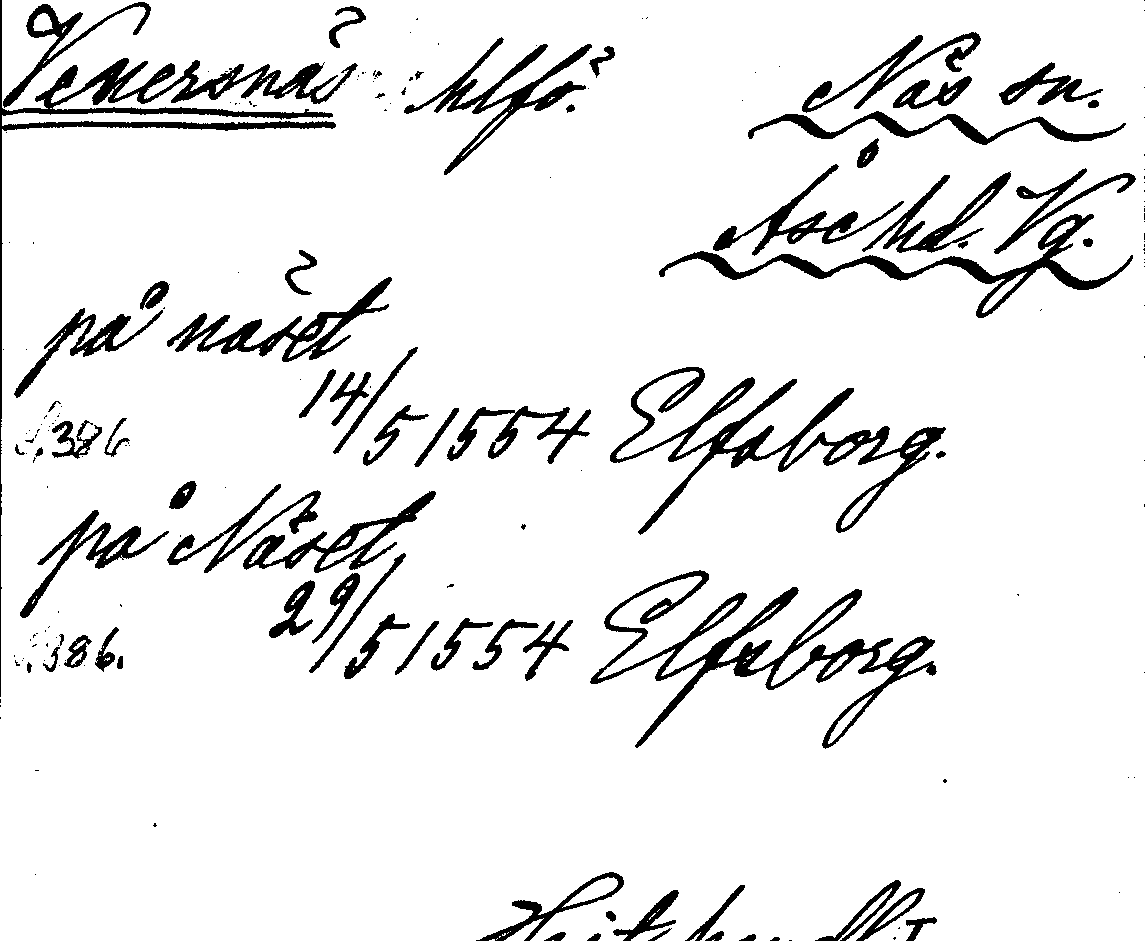 Venersnäs Ulfö. Näs sn.
Åse hd. Vg.
på näset
14/5 1554 Elfsborg.
S. 386
på Näset,
29/5 1554 Elfsborg.
S. 386.